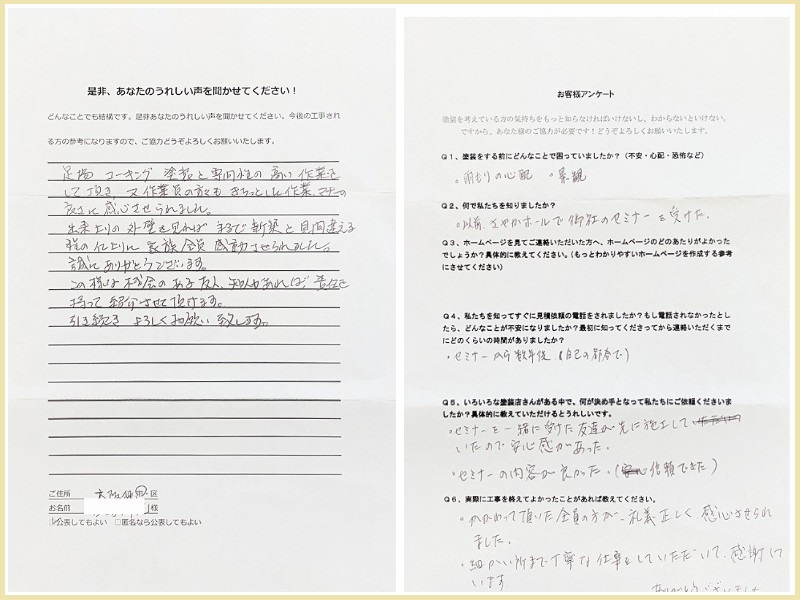 是非、あなたのうれしい声を聞かせてください!
どんなことでも結構です。是非あなたのうれしい声を聞かせてください、今後の工事され
る方の参考になりますので、ご協力どうぞよろしくお願いいたします。
足場 コーキング 塗装と専門性の高い作業を
して頂き、又作業員の方々もきちっとした作業、マナーの
良さに感心させられました。
出来上りの外壁を見ればまるで新築と見間違える
程の仕上りに家族全員感動させられました。
誠にありがとうございます。
この様な機会のある友人、知人あれば責任を
持って紹介させて頂けます。
引き続きよろしくお願い致します。
ご住所 区
お名前 様
☑公表してもよい □匿名なら公表してもよい
お客様アンケート
塗装を考えている方の気持ちをもっと知らなければいけないし、わからないといけない。
ですから、あなた様のご協力が必要です!どうぞよろしくお願いいたします。
Q1、塗装をする前にどんなことで困っていましたか?(不安・心配・恐怖など)
。雨もりの心配 。景観
Q2、何で私たちを知りましたか?
。以前、さやかホールで御社のセミナーを受けた.
Q3、ホームページを見てご連絡いただいた方へ、ホームページのどのあたりがよかった
でしょうか?具体的に教えてください。(もっとわかりやすいホームページを作成する参考
にさせてください)
Q4、私たちを知ってすぐに見積依頼の電話をされましたか?もし電話されなかったとし
たら、どんなことが不安になりましたか?最初に知ってくださってから連絡いただくまで
にどのくらいの時間がありましたか?
・セミナーから数年後 (自己の都合で)
Q5、いろいろな塗装店さんがある中で、何が決め手となって私たちにご依頼くださいま
したか?具体的に教えていただけるとうれしいです。
・セミナーを一緒に受けた友達が先に施工して
いたので安心感があった.
・セミナーの内容が良かった.(信頼できた)
Q6、実際に工事を終えてよかったことがあれば教えてください。
。かかわって頂いた全員の方が、礼義正しく感心させられ
ました.
・細かい所まで丁寧な仕事をしていただいて、感謝して
います
ありがとうございました